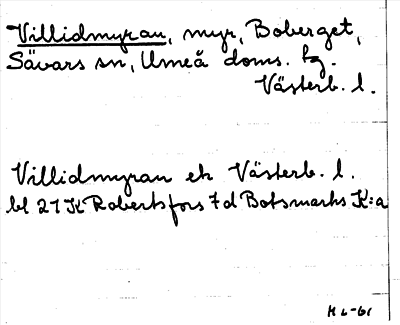 Villidmyran, myr, Boberget,
Sävars sn, Umeå doms. tg.
Västerb. l.
Villidmyran ek Västerb. l.
bl 21 K Robertsfors 7 d Botsmarks K:a
H L-61